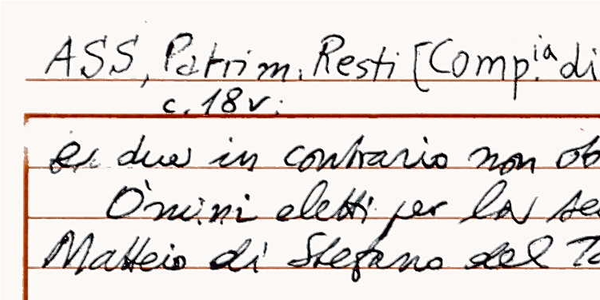 ASS, Patrim. Resti [Comp.ia di
c. 18v.
et due in contrario non ob
Omini eletti per la se
Matteio di Stefano del Ta